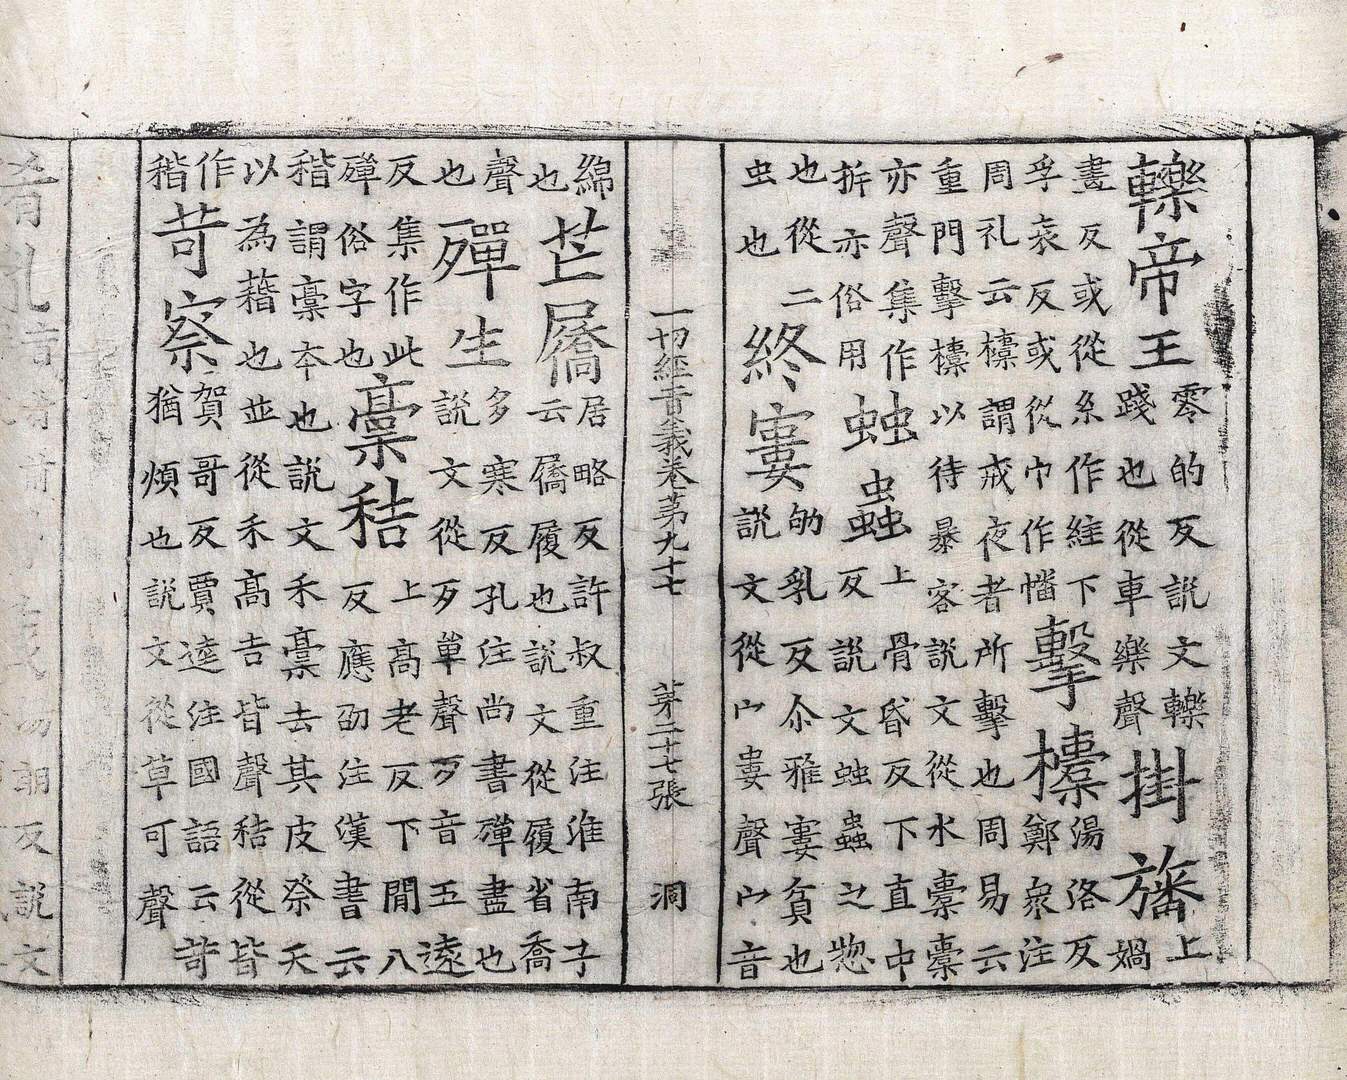 轢帝王
零的反說文轢
踐也從車樂聲
掛旛
上
媧
畫反或從糸作絓下
孚袁反或從巾作幡
擊㯱
湯洛反
鄭衆注
周礼云㯱謂戒夜者所擊也周易云
重門擊㯱以待暴客說文從水橐橐
亦聲集作
拆亦俗用
䖵蟲
上骨昬反下直中
反說文䖵蟲之惣
也從二
虫也
終寠
劬乳反尒雅寠貧也
說文從宀婁聲宀音
一切經音義卷苐九十七 苐二十七張 洞
綿
也
芒屩
居略反許叔重注淮南子
云屩履也說文從履省喬
聲
也
殫生
多寒反孔注尚書殫盡也
說文從歹單聲歹音五遠
反集作此
殫俗字也
稾秸
上高老反下閒八
反應劭注漢書云
稭謂稾夲也說文禾稾去其皮祭天
以為藉也並從禾高吉皆聲秸從皆
作
稭
苛察
賀哥反賈逵注國語云苛
猶煩也說文從草可聲
朝反說文